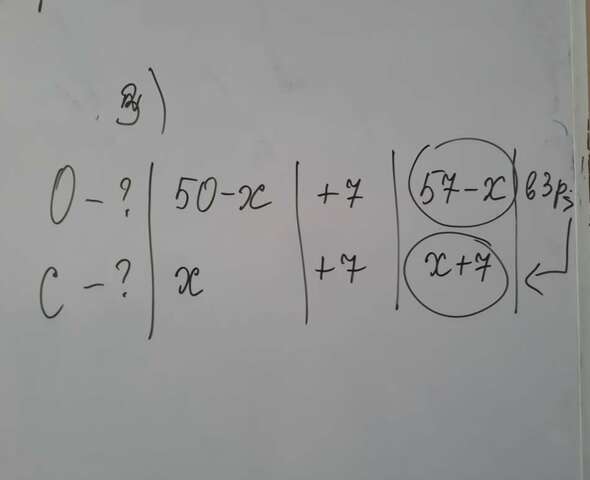 О - ? | 50-x | +7 | 57-x | в 3 р.
С - ? | x | +7 | x+7 |